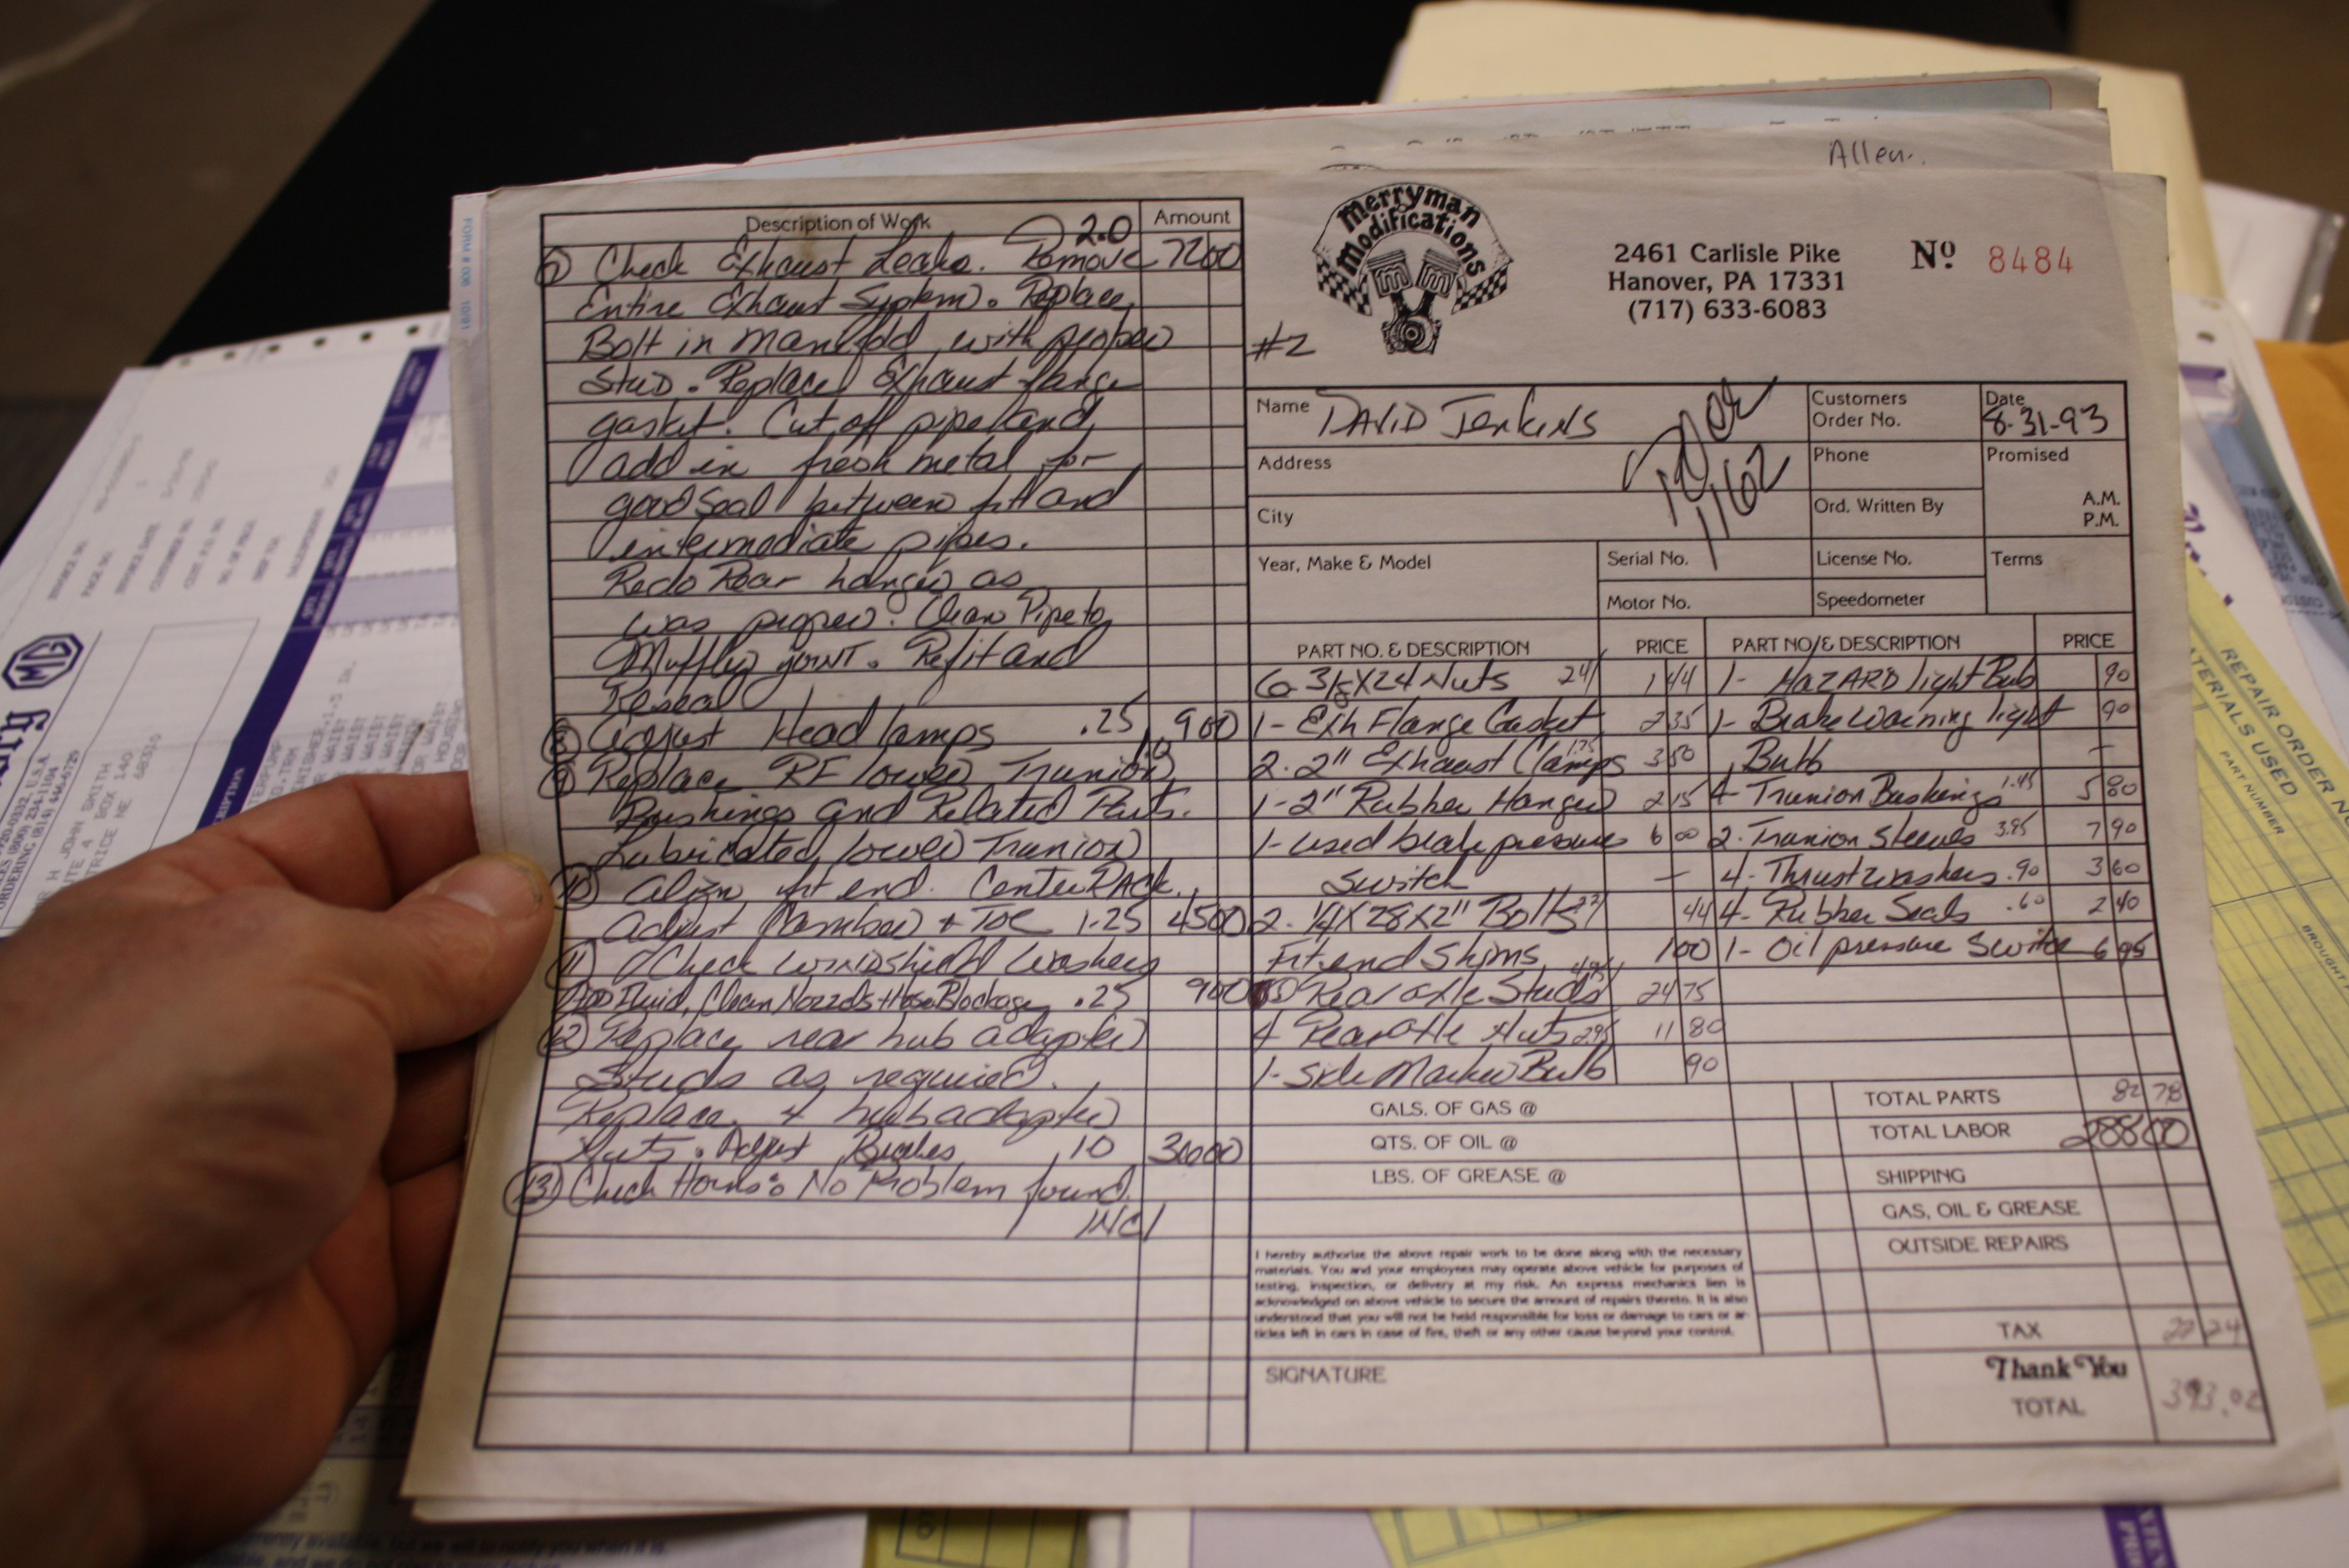 Allen.
Description of Work
Amount
2.0
Check Exhaust Leaks. Remove 72 00
Entire Exhaust System. Replace
Bolt in manifold with proper
Stud. Replace Exhaust flange
gasket. Cut off pipe and
add in fresh metal for
good seal between frt and
intermediate pipes.
Redo Rear hanger as
was proper. Clean Pipe to
Muffler joint. Refit and
Reseal
8 Adjust Head lamps .25 9 00
9 Replace RF lower Trunion 1.0
Bushings and Related Parts.
Lubricated lower Trunion
10 Align frt end. Center Rack.
Adjust Camber + Toe 1.25 45 00
11 Check Windshield Washers
Add Fluid, Clean Nozzels + Hose Blockage .25 9 00
12 Replace rear hub adapter
Studs as required.
Replace 4 hub adapter
Nuts. Adjust Brakes 10 36 00
13 Check Horns: No Problem found.
INCl
merryman
modifications
2461 Carlisle Pike
Hanover, PA 17331
(717) 633-6083
Nº 8484
#2
Name DAVID JENKINS
1162
Customers
Order No.
Date
8-31-93
Address
Phone
Promised
A.M.
P.M.
City
Ord. Written By
Year, Make & Model
Serial No.
License No.
Terms
Motor No.
Speedometer
PART NO. & DESCRIPTION PRICE
6 3/8X24 Nuts 24/ 1 44
1- Exh Flange Gasket 2 35
2. 2" Exhaust Clamps 1.75 3 50
1- 2" Rubber Hanger 2 15
1- used brake pressure 6 00
Switch —
2. 1/4X28X2" Bolts 22/ 44
Frt end Shims 1 00
Rear axle Studs 4.95 24 75
4 Rear axle Nuts 2.95 11 80
1- Side Marker Bulb 90
PART NO/& DESCRIPTION PRICE
1- HAZARD light Bulb 90
1- Brake Warning light 90
Bulb —
4- Trunion Bushings 1.45 5 80
2. Trunion Sleeves 3.95 7 90
4- Thrustwashers .90 3 60
4- Rubber Seals .60 2 40
1- Oil pressure Switch 6 95
GALS. OF GAS @
QTS. OF OIL @
LBS. OF GREASE @
TOTAL PARTS 82 78
TOTAL LABOR 288 00
SHIPPING
GAS, OIL & GREASE
OUTSIDE REPAIRS
TAX 22 24
Thank You
TOTAL 393.02
I hereby authorize the above repair work to be done along with the necessary
materials. You and your employees may operate above vehicle for purposes of
testing, inspection, or delivery at my risk. An express mechanics lien is
acknowledged on above vehicle to secure the amount of repairs thereto. It is also
understood that you will not be held responsible for loss or damage to cars or ar-
ticles left in cars in case of fire, theft or any other cause beyond your control.
SIGNATURE
FORM # 006 10/91
MG
H JOHN SMITH
BOX 140
REPAIR ORDER NO
MATERIALS USED
PART NUMBER